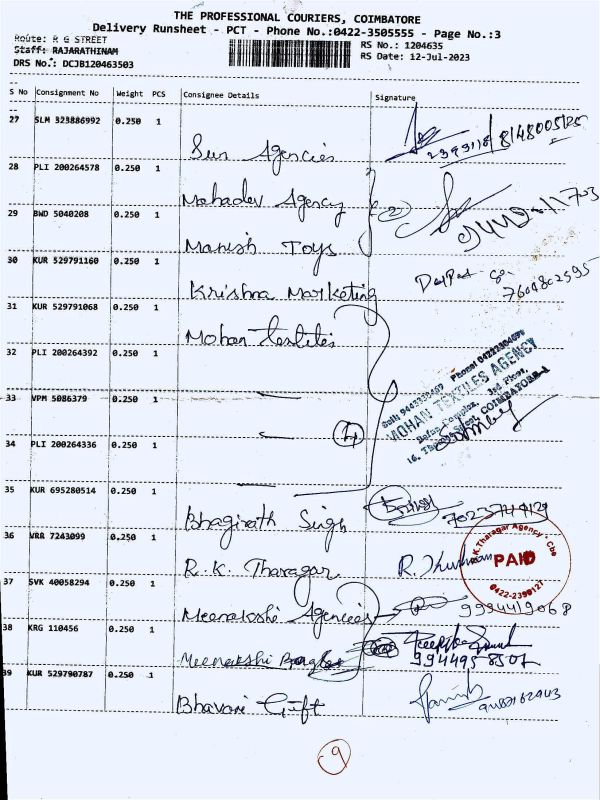 THE PROFESSIONAL COURIERS, COIMBATORE
Delivery Runsheet - PCT - Phone No.:0422-3505555 - Page No.:3
Route: R G STREET
RS No.: 1204635
Staff: RAJARATHINAM
RS Date: 12-Jul-2023
DRS No.: DCJB120463503
S No Consignment No Weight PCS Consignee Details Signature
27 SLM 323886992 0.250 1 Sun Agencies
28 PLI 200264578 0.250 1 Mahadev Agency (2)
29 BWD 5040208 0.250 1 Manish Toys
30 KUR 529791160 0.250 1 Krishna Marketing 7604802595
31 KUR 529791068 0.250 1 Mohan Textiles
32 PLI 200264392 0.250 1
MOHAN TEXTILES AGENCY
3rd Floor,
COIMBATORE-1
33 VPM 5086379 0.250 1
34 PLI 200264336 0.250 1 4
35 KUR 695280514 0.250 1 Bhagirath Singh
36 VRR 7243099 0.250 1 R.K. Tharagar
K.Tharagar Agency - Cbe
PAID
0422-2390127
37 SVK 40058294 0.250 1 Meenakshi Agencies
38 KRG 110456 0.250 1 Meenakshi
39 KUR 529790787 0.250 1 Bhavani Gift
9